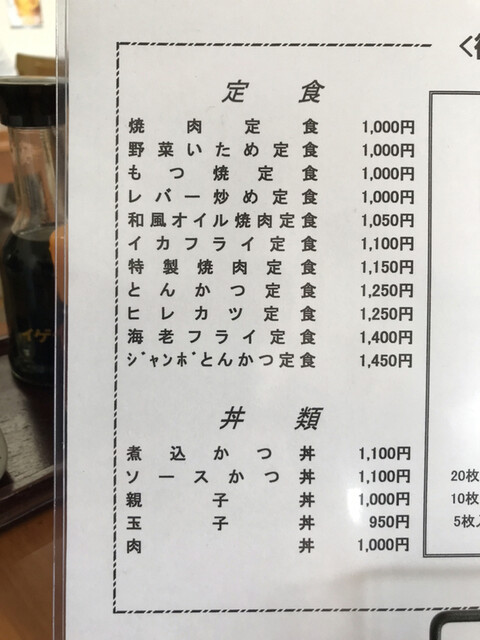 定食
焼肉定食 1,000円
野菜いため定食 1,000円
もつ焼定食 1,000円
レバー炒め定食 1,000円
和風オイル焼肉定食 1,050円
イカフライ定食 1,100円
特製焼肉定食 1,150円
とんかつ定食 1,250円
ヒレカツ定食 1,250円
海老フライ定食 1,400円
ｼﾞｬﾝﾎﾞとんかつ定食 1,450円
丼類
煮込かつ丼 1,100円
ソースかつ丼 1,100円
親子丼 1,000円
玉子丼 950円
肉丼 1,000円
20枚
10枚
5枚入
イゲ